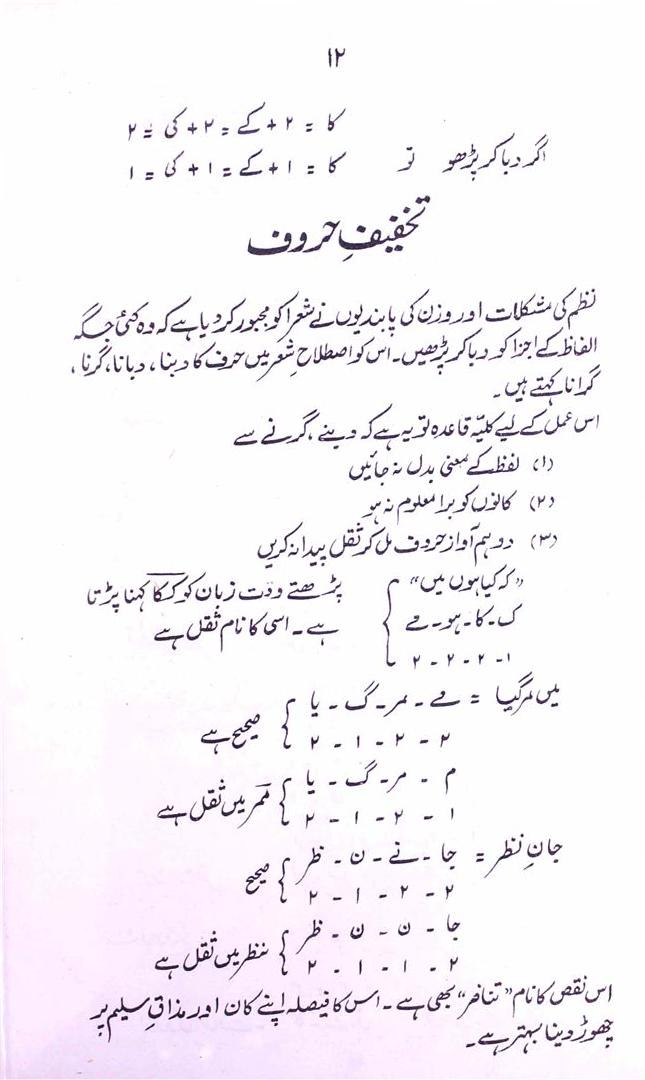 ۱۲
کا = ۲ + کے = ۲ + کی = ۲
اگر دبا کر پڑھو تو کا = ۱ + کے = ۱ + کی = ۱
تخفیفِ حروف
نظم کی مشکلات اور وزن کی پابندیوں نے شعرا کو مجبور کر دیا ہے کہ وہ کئی جگہ
الفاظ کے اجزا کو دبا کر پڑھیں۔ اس کو اصطلاحِ شعر میں حرف کا دبنا، دبانا، گرنا،
گرانا کہتے ہیں۔
اس عمل کے لیے کلیّہ قاعدہ تو یہ ہے کہ دبنے، گرنے سے
(۱) لفظ کے معنی بدل نہ جائیں
(۲) کانوں کو برا معلوم نہ ہو
(۳) دو ہم آواز حروف مل کر ثقل پیدا نہ کریں
"کہ کیا ہوں میں" { پڑھتے وقت زبان کو ککا کہنا پڑتا
ک - کا - ہو - مے { ہے۔ اسی کا نام ثقل ہے
۱ - ۲ - ۲ - ۲
میں مر گیا = مے - مر - گ - یا
۲ - ۲ - ۱ - ۲ } صحیح ہے
م - مر - گ - یا
۱ - ۲ - ۱ - ۲ } ممر میں ثقل ہے
جانِ نظر = جا - نے - ن - ظر
۲ - ۲ - ۱ - ۲ } صحیح
جا - ن - ن - ظر
۲ - ۱ - ۱ - ۲ } ننظر میں ثقل ہے
اس نقص کا نام "تنافر" بھی ہے۔ اس کا فیصلہ اپنے کان اور مذاقِ سلیم پر
چھوڑ دینا بہتر ہے۔